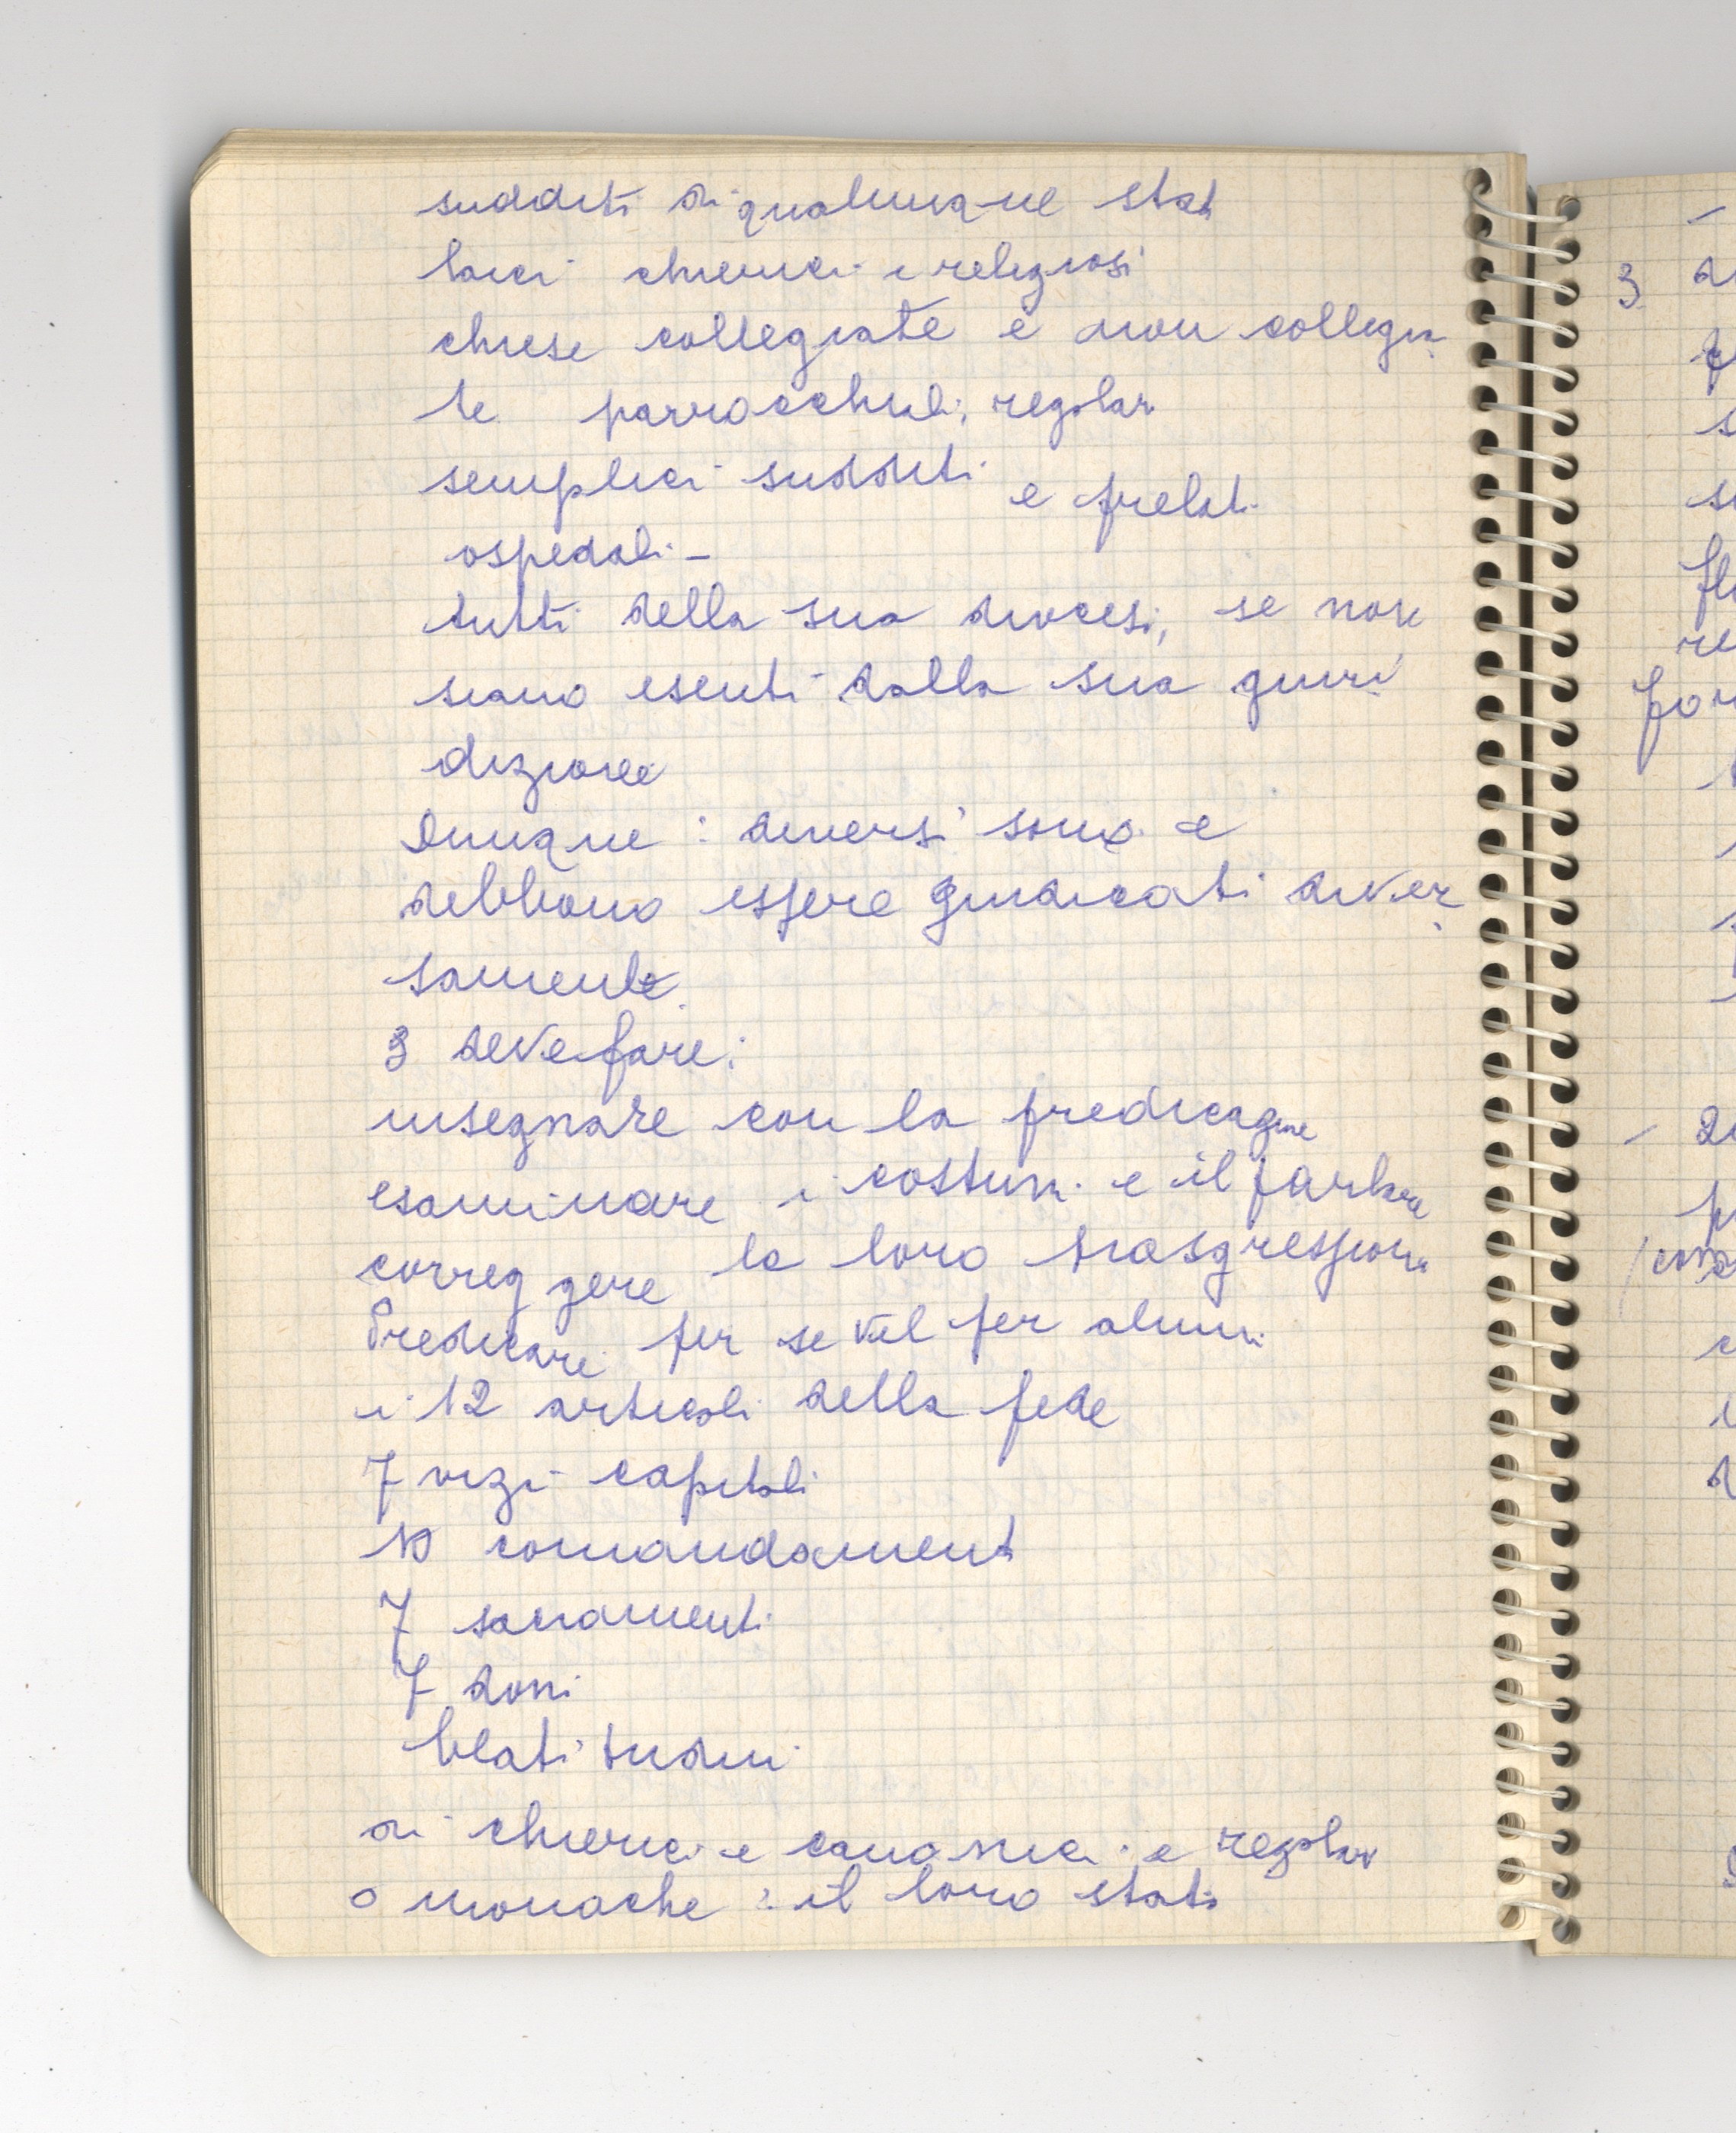 sudditi di qualunque stat
laici chierici e religiosi
chiese collegiate e non collegia
te parrocchiali, regolari
semplici sudditi e prelati
ospedali -
tutti della sua diocesi, se non
siano esenti dalla sua giuri
dizione
Dunque : diversi sono e
debbono essere giudicati diver
samente.
3 deve fare:
insegnare con la predicazione
esaminare i costumi e il parlare
correggere le loro trasgressioni
Predicare per se vel per alium
i 12 articoli della fede
7 vizi capitali
10 comandament
7 sacramenti
7 doni
beatitudini
di chierici e canonici e regolari
o monache : il loro stato
3